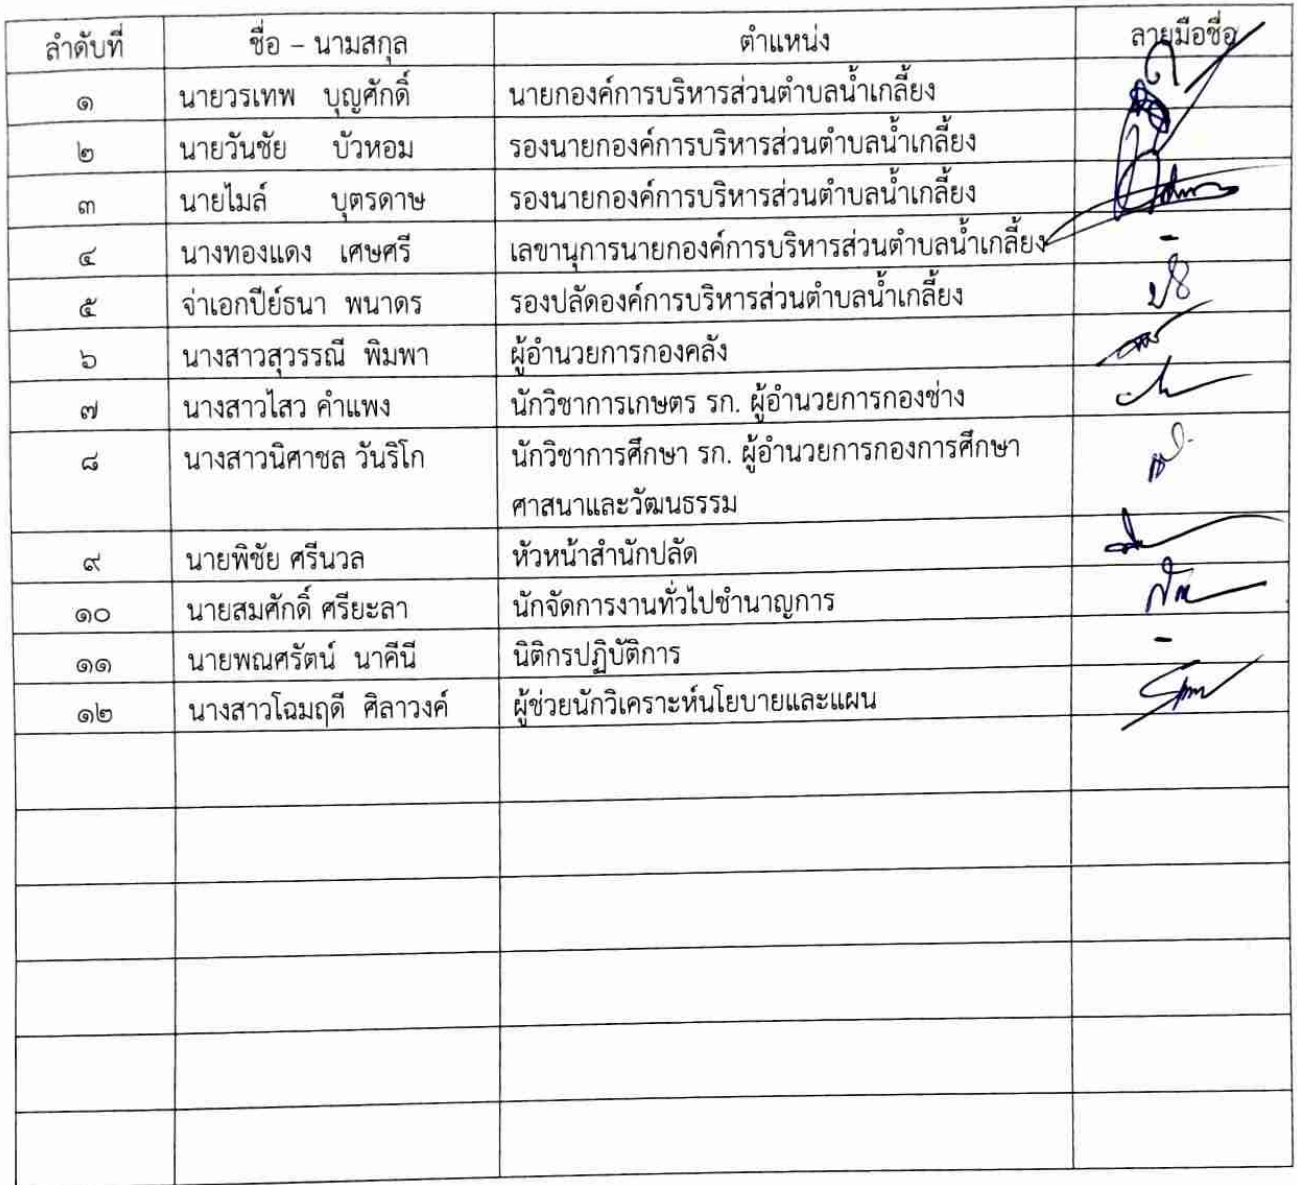 ลำดับที่ ชื่อ – นามสกุล ตำแหน่ง ลายมือชื่อ
๑ นายวรเทพ บุญศักดิ์ นายกองค์การบริหารส่วนตำบลน้ำเกลี้ยง
๒ นายวันชัย บัวหอม รองนายกองค์การบริหารส่วนตำบลน้ำเกลี้ยง
๓ นายไมล์ บุตรดาษ รองนายกองค์การบริหารส่วนตำบลน้ำเกลี้ยง
๔ นางทองแดง เศษศรี เลขานุการนายกองค์การบริหารส่วนตำบลน้ำเกลี้ยง -
๕ จ่าเอกปีย์ธนา พนาดร รองปลัดองค์การบริหารส่วนตำบลน้ำเกลี้ยง
๖ นางสาวสุวรรณี พิมพา ผู้อำนวยการกองคลัง
๗ นางสาวไสว คำแพง นักวิชาการเกษตร รก. ผู้อำนวยการกองช่าง
๘ นางสาวนิศาชล วันริโก นักวิชาการศึกษา รก. ผู้อำนวยการกองการศึกษา
ศาสนาและวัฒนธรรม
๙ นายพิชัย ศรีนวล หัวหน้าสำนักปลัด
๑๐ นายสมศักดิ์ ศรียะลา นักจัดการงานทั่วไปชำนาญการ
๑๑ นายพณศรัตน์ นาคีนี นิติกรปฏิบัติการ -
๑๒ นางสาวโฉมฤดี ศิลาวงค์ ผู้ช่วยนักวิเคราะห์นโยบายและแผน